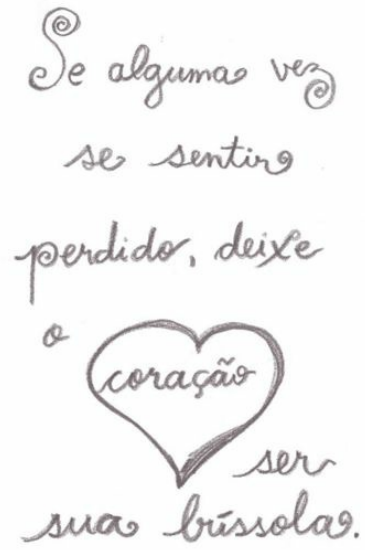 Se alguma vez
se sentir
perdido, deixe
o coração
ser
sua bússola.